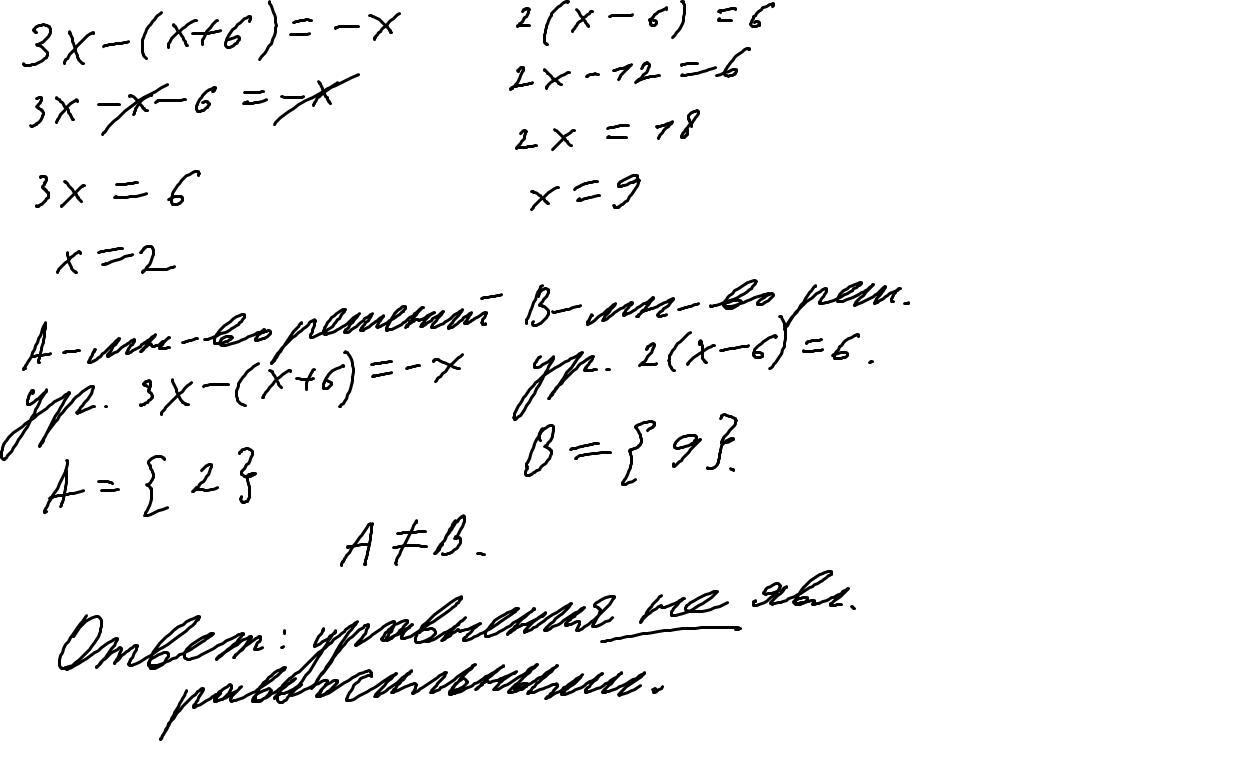 3x-(x+6)=-x
3x-x-6=-x
3x=6
x=2
2(x-6)=6
2x-12=6
2x=18
x=9
А-мн-во решений
ур. 3x-(x+6)=-x
A={2}
В-мн-во реш.
ур. 2(x-6)=6.
B={9}.
A≠B.
Ответ: уравнения не явл.
равносильными.